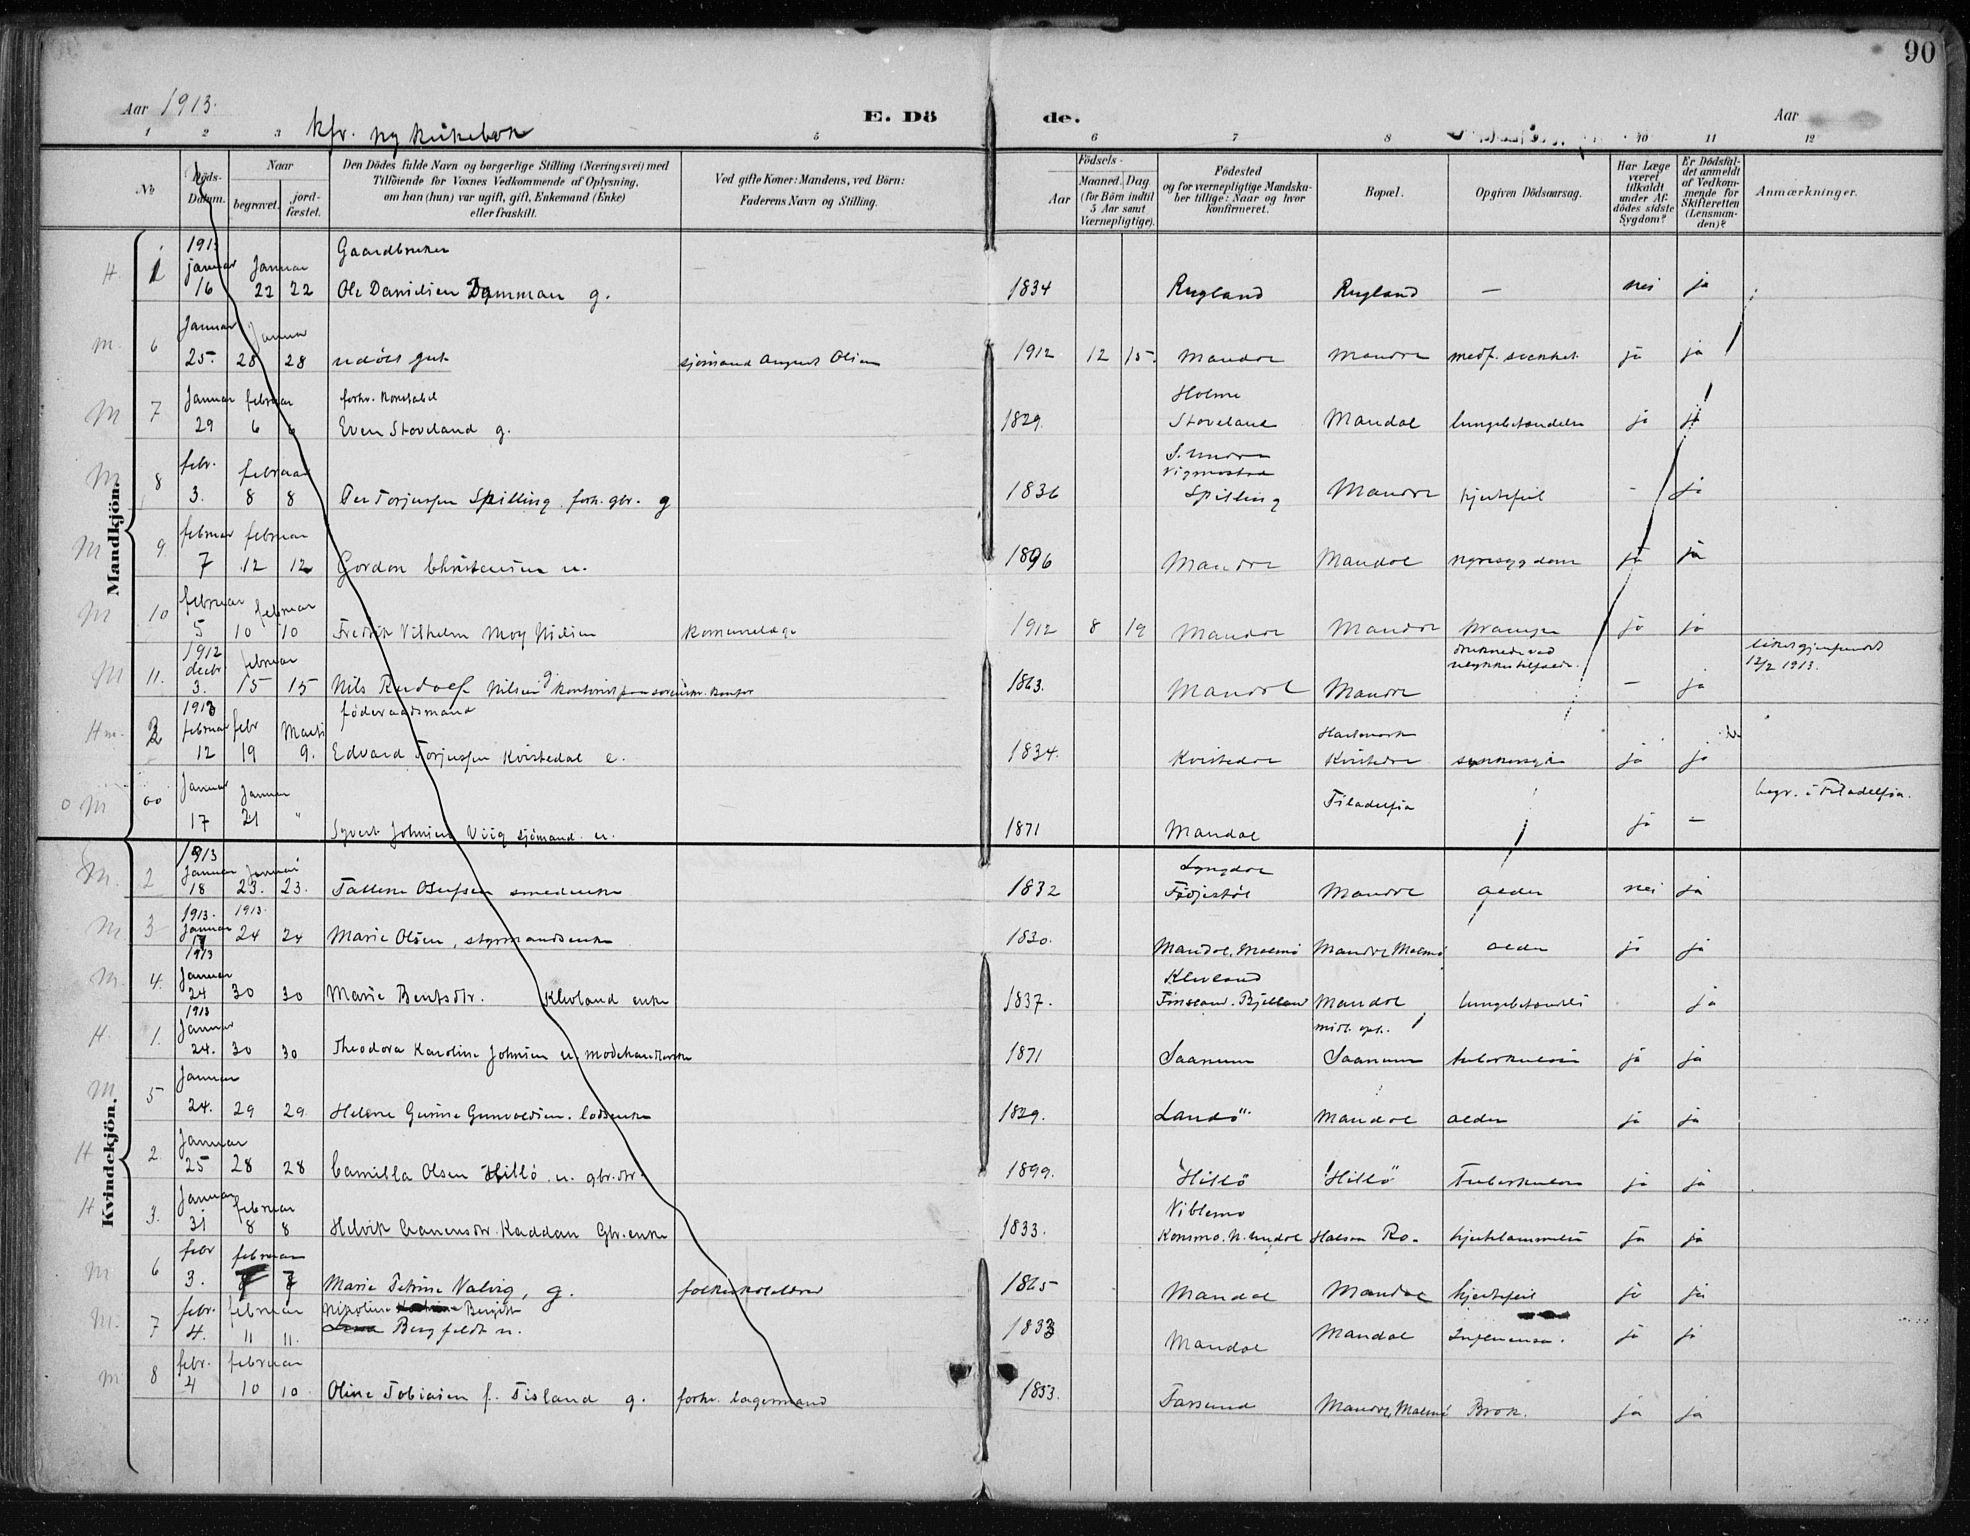 90
Aar 1913.
kfr. ny kirkebok
E. Dö de.
Aar
1 2 3 5 6 7 8 10 11 12
No
Döds-Datum.
Naar
begravet.
jord-fæstet.
Den Dödes fulde Navn og borgerlige Stilling (Næringsvei) med
Tilföiende for Voxnes Vedkommende af Oplysning,
om han (hun) var ugift, gift, Enkemand (Enke)
eller fraskilt.
Ved gifte Koner: Mandens, ved Börn:
Faderens Navn og Stilling.
Födsels-
Aar
Maaned. Dag
(for Börn indtil
5 Aar samt
Værnepligtige).
Födested
og for værnepligtige Mandska-
ber tillige: Naar og hvor
konfirmeret.
Bopæl.
Opgiven Dödsaarsag.
Har Læge
været
tilkaldt
under Af-
dödes sidste
Sygdom?
Er Dödsfal-
det anmeldt
af Vedkom-
mende for
Skifteretten
(Lensman-
den)?
Anmærkninger.
Mandkjön.
1913 Gaardbruker
H. 1 januar 16 Januar 22 22 Ole Danielsen g. 1834 Rugland Rugland — nei ja
M. 6 Januar 25. Januar 28 28 udöbt gut sjömand August Olsen 1912 12 15. Mandal Mandal medf. svakhet ja ja
M 7 Januar 29 februar 6 6 forhv. Konstabel
Even Stoveland g. 1829. Holme Stoveland Mandal lungebetændelse ja ja
M 8 febr. 3. februar 8 8 Per Torjussen Spilling forh. gbr. g 1836 S. Undal Vigmostad Spilling Mandal hjertefeil - ja
M 9. februar 7 februar 12 12 Gordon Christensen u. 1896 Mandal Mandal nyresygdom ja ja
M 10 februar 5 februar 10 10 Fredrik Vilhelm Moy Nilsen 1912 8 19 Mandal Mandal krampe ja ja
M 11. 1912 decbr. 3. februar 15 15 Nils Rudolf Nilsen g kontorist paa sorenskr. kontor 1863. Mandal Mandal druknede ved ulykkestilfælde. — ja liket gjenfundet 12/2 1913.
Hm. 2 1913 februar 12 febr 19 Marts 9. föderaadsmand
Edvard Torjussen Kvistedal e. 1834. Kvistedal Hartmark Kvistedal ja ja
M Januar 17 Januar 21 " Syvert Johnsen Viig sjömand. u. 1871 Mandal Filadelfia ja — begr. i Filadelfia.
Kvindekjön.
M. 2 1913 Januar 18 Januar 23. 23. Tallene Olufsen smedenke 1832 Lyngdal Mandal alder nei ja
M 3 1913. Januar 17 1913. 24 24 Marie Olsen, styrmandsenke 1830. Mandal, Malmö Mandal Malmö alder ja ja
M 4. 1913 Januar 24 30 30 Marie Bentsdtr. Klevland enke 1837. Kleveland Finsland. Bjelland Mandal lungebetændelse ja
H. 1. 1913 Januar 24. 30 30 Theodora Karoline Johnsen u modehandlerske 1871 Saanum Saanum tuberkulose ja ja
M 5 Januar 24. 29 29. Helene Gurine Gunvaldsen. lodsenke 1829. Landö Mandal alder ja ja
H 2. Januar 25 28 28 Camilla Olsen Hillö u. gbr.dtr. 1899. Hillö Hillö Tuberkulose ja ja
H 3. Januar 31 februar 8 8 Kaddan Gbr. enke 1833. Viblemo Konsmo. N. Undal Halsaa Ro. ja ja
M 6 febr 3. februar 7 Marie Petrine Valvig, g. folkeskolelærer 1865 Mandal Mandal hjertefeil ja ja
M. 7 febr. 4. februar 11 11. Nikoline Bergitte
Bergfeldt u. 1833 Mandal Mandal Influensa. ja ja
M 8 febr. 4 februar 10 10. Oline Tobiasen f. Tisland g. forhv. lagermand 1853. Farsund Mandal, Malmö Brok. ja ja